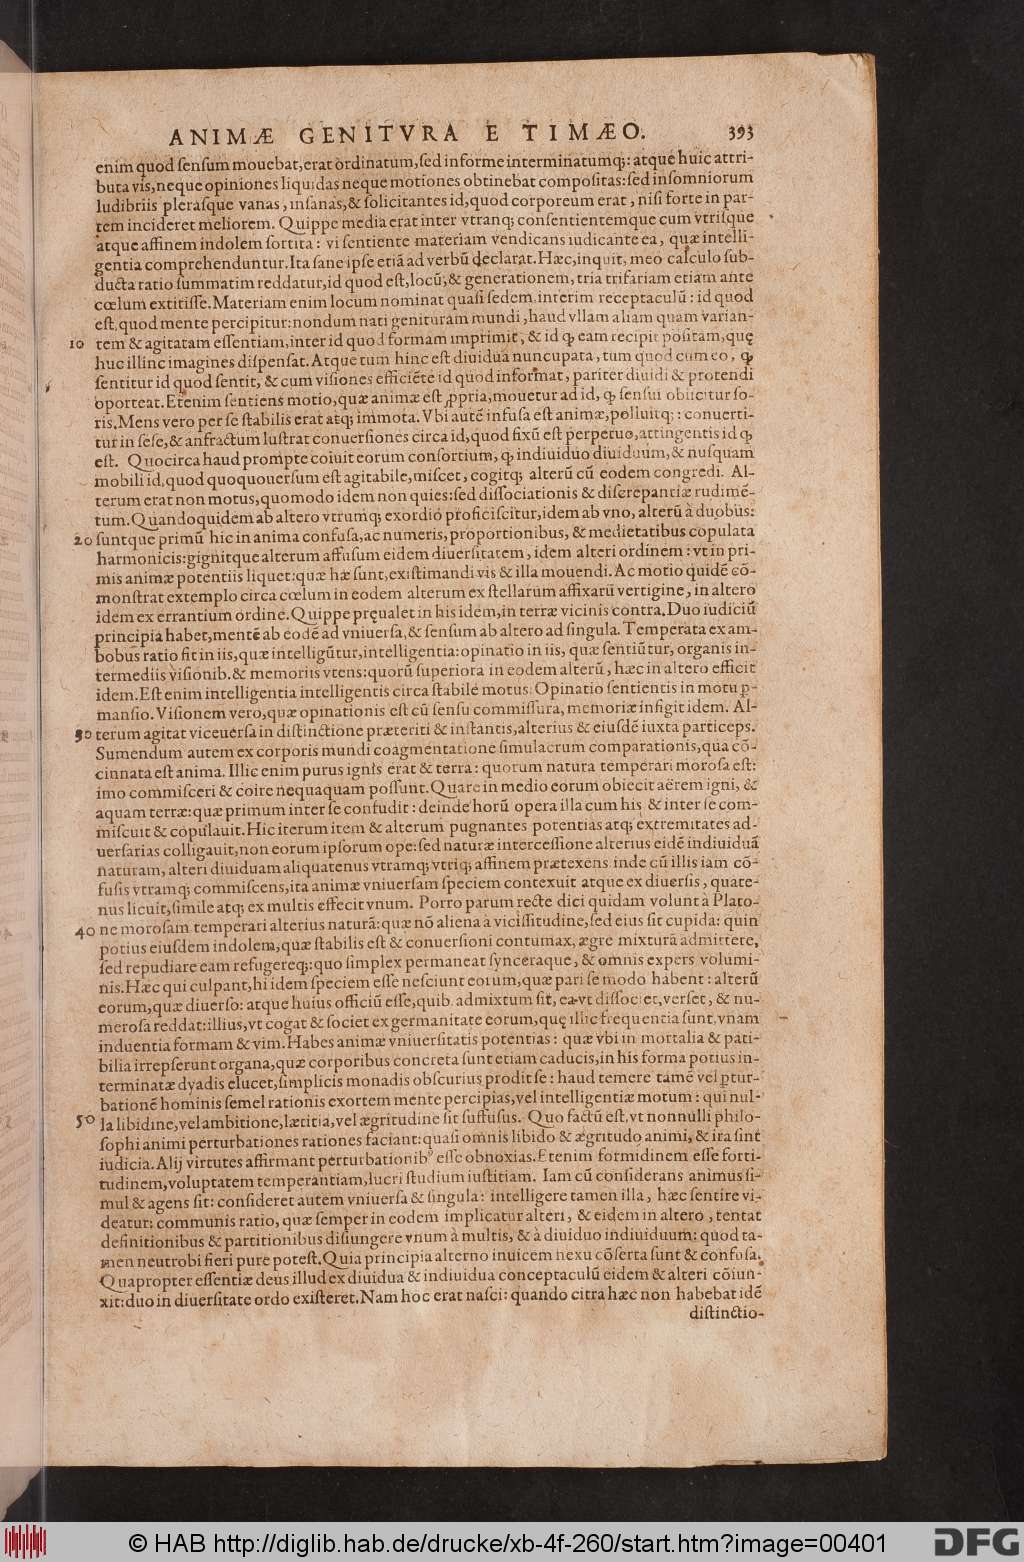 ANIMÆ GENITVRA E TIMÆO. 393
enim quod ſenſum mouebat, erat ordinatum, ſed informe interminatumq;: atque huic attri-
buta vis, neque opiniones liquidas neque motiones obtinebat compoſitas: ſed inſomniorum
ludibriis pleraſque vanas, inſanas, & ſolicitantes id, quod corporeum erat, niſi forte in par-
tem incideret meliorem. Quippe media erat inter vtranq; conſentientemque cum vtriſque
atque affinem indolem ſortita: vi ſentiente materiam vendicans iudicante ea, quæ intelli-
gentia comprehenduntur. Ita ſane ipſe etiã ad verbũ declarat. Hæc, inquit, meo calculo ſub-
ducta ratio ſummatim reddatur, id quod eſt, locũ, & generationem, tria trifariam etiam ante
cœlum extitiſſe. Materiam enim locum nominat quaſi ſedem, interim receptaculũ: id quod
eſt, quod mente percipitur: nondum nati genituram mundi, haud vllam aliam quam varian-
10 tem & agitatam eſſentiam, inter id quod formam imprimit, & id ꝙ eam recipit poſitam, quę
huc illinc imagines diſpenſat. Atque tum hinc eſt diuidua nuncupata, tum quod cum eo, ꝙ
ſentitur id quod ſentit, & cum viſiones efficiẽte id quod informat, pariter diuidi & protendi
oporteat. Etenim ſentiens motio, quæ animæ eſt ꝓpria, mouetur ad id, ꝙ ſenſui obiicitur fo-
ris. Mens vero per ſe ſtabilis erat atq; immota. Vbi autẽ infuſa eſt animæ, polluitq;: conuerti-
tur in ſeſe, & anfractum luſtrat conuerſiones circa id, quod fixũ eſt perpetuo, attingentis id ꝙ
eſt. Quocirca haud prompte coiuit eorum conſortium, ꝙ indiuiduo diuiduum, & nuſquam
mobili id, quod quoquouerſum eſt agitabile, miſcet, cogitq; alterũ cũ eodem congredi. Al-
terum erat non motus, quomodo idem non quies: ſed diſſociationis & diſcrepantiæ rudimẽ-
tum. Quandoquidem ab altero vtrumq; exordio proficiſcitur, idem ab vno, alterũ à duobus:
20 ſuntque primũ hic in anima confuſa, ac numeris, proportionibus, & medietatibus copulata
harmonicis: gignitque alterum affuſum eidem diuerſitatem, idem alteri ordinem: vt in pri-
mis animæ potentiis liquet: quæ hæ ſunt, exiſtimandi vis & illa mouendi. Ac motio quidẽ cõ-
monſtrat extemplo circa cœlum in eodem alterum ex ſtellarum affixarũ vertigine, in altero
idem ex errantium ordine. Quippe pręualet in his idem, in terræ vicinis contra. Duo iudiciũ
principia habet, mentẽ ab eodẽ ad vniuerſa, & ſenſum ab altero ad ſingula. Temperata ex am-
bobus ratio fit in iis, quæ intelligũtur, intelligentia: opinatio in iis, quæ ſentiũtur, organis in-
termediis viſionib. & memoriis vtens: quorũ ſuperiora in eodem alterũ, hæc in altero efficit
idem. Eſt enim intelligentia intelligentis circa ſtabile motus: Opinatio ſentientis in motu ꝑ-
manſio. Viſionem vero, quæ opinationis eſt cũ ſenſu commiſſura, memoriæ infigit idem. Al-
30 terum agitat viceuerſa in diſtinctione præteriti & inſtantis, alterius & eiuſdẽ iuxta particeps.
Sumendum autem ex corporis mundi coagmentatione ſimulacrum comparationis, qua cõ-
cinnata eſt anima. Illic enim purus ignis erat & terra: quorum natura temperari moroſa eſt:
imo commiſceri & coire nequaquam poſſunt. Quare in medio eorum obiecit aërem igni, &
aquam terræ: quæ primum inter ſe confudit: deinde horũ opera illa cum his & inter ſe com-
miſcuit & copulauit. Hic iterum item & alterum pugnantes potentias atq; extremitates ad-
uerſarias colligauit, non eorum ipſorum ope: ſed naturæ interceſſione alterius eidẽ indiuiduã
naturam, alteri diuiduam aliquatenus vtramq; vtriq; affinem prætexens inde cũ illis iam cõ-
fuſis vtramq; commiſcens, ita animæ vniuerſam ſpeciem contexuit atque ex diuerſis, quate-
nus licuit, ſimile atq; ex multis effecit vnum. Porro parum recte dici quidam volunt à Plato-
40 ne moroſam temperari alterius naturã: quæ nõ aliena à viciſſitudine, ſed eius ſit cupida: quin
potius eiuſdem indolem, quæ ſtabilis eſt & conuerſioni contumax, ægre mixturã admittere,
ſed repudiare eam refugereq;: quo ſimplex permaneat ſynceraque, & omnis expers volumi-
nis. Hæc qui culpant, hi idem ſpeciem eſſe neſciunt eorum, quæ pari ſe modo habent: alterũ
eorum, quæ diuerſo: atque huius officiũ eſſe, quib. admixtum ſit, ea vt diſſociet, verſet, & nu-
meroſa reddat: illius, vt cogat & ſociet ex germanitate eorum, quę illic frequentia ſunt, vnam
induentia formam & vim. Habes animæ vniuerſitatis potentias: quæ vbi in mortalia & pati-
bilia irrepſerunt organa, quæ corporibus concreta ſunt etiam caducis, in his forma potius in-
terminatæ dyadis elucet, ſimplicis monadis obſcurius prodit ſe: haud temere tamẽ vel ꝑtur-
bationẽ hominis ſemel rationis exortem mente percipias, vel intelligentiæ motum: qui nul-
50 la libidine, vel ambitione, lætitia, vel ægritudine ſit ſuffuſus. Quo factũ eſt, vt nonnulli philo-
ſophi animi perturbationes rationes faciant: quaſi omnis libido & ægritudo animi, & ira ſint
iudicia. Alij virtutes affirmant perturbationib⁹ eſſe obnoxias. Etenim formidinem eſſe forti-
tudinem, voluptatem temperantiam, lucri ſtudium iuſtitiam. Iam cũ conſiderans animus ſi-
mul & agens ſit: conſideret autem vniuerſa & ſingula: intelligere tamen illa, hæc ſentire vi-
deatur: communis ratio, quæ ſemper in eodem implicatur alteri, & eidem in altero, tentat
definitionibus & partitionibus diſiungere vnum à multis, & à diuiduo indiuiduum: quod ta-
men neutrobi fieri pure poteſt. Quia principia alterno inuicem nexu cõſerta ſunt & confuſa.
Quapropter eſſentiæ deus illud ex diuidua & indiuidua conceptaculũ eidem & alteri cõiun-
xit: duo in diuerſitate ordo exiſteret. Nam hoc erat naſci: quando citra hæc non habebat idẽ
diſtinctio-
© HAB http://diglib.hab.de/drucke/xb-4f-260/start.htm?image=00401
DFG